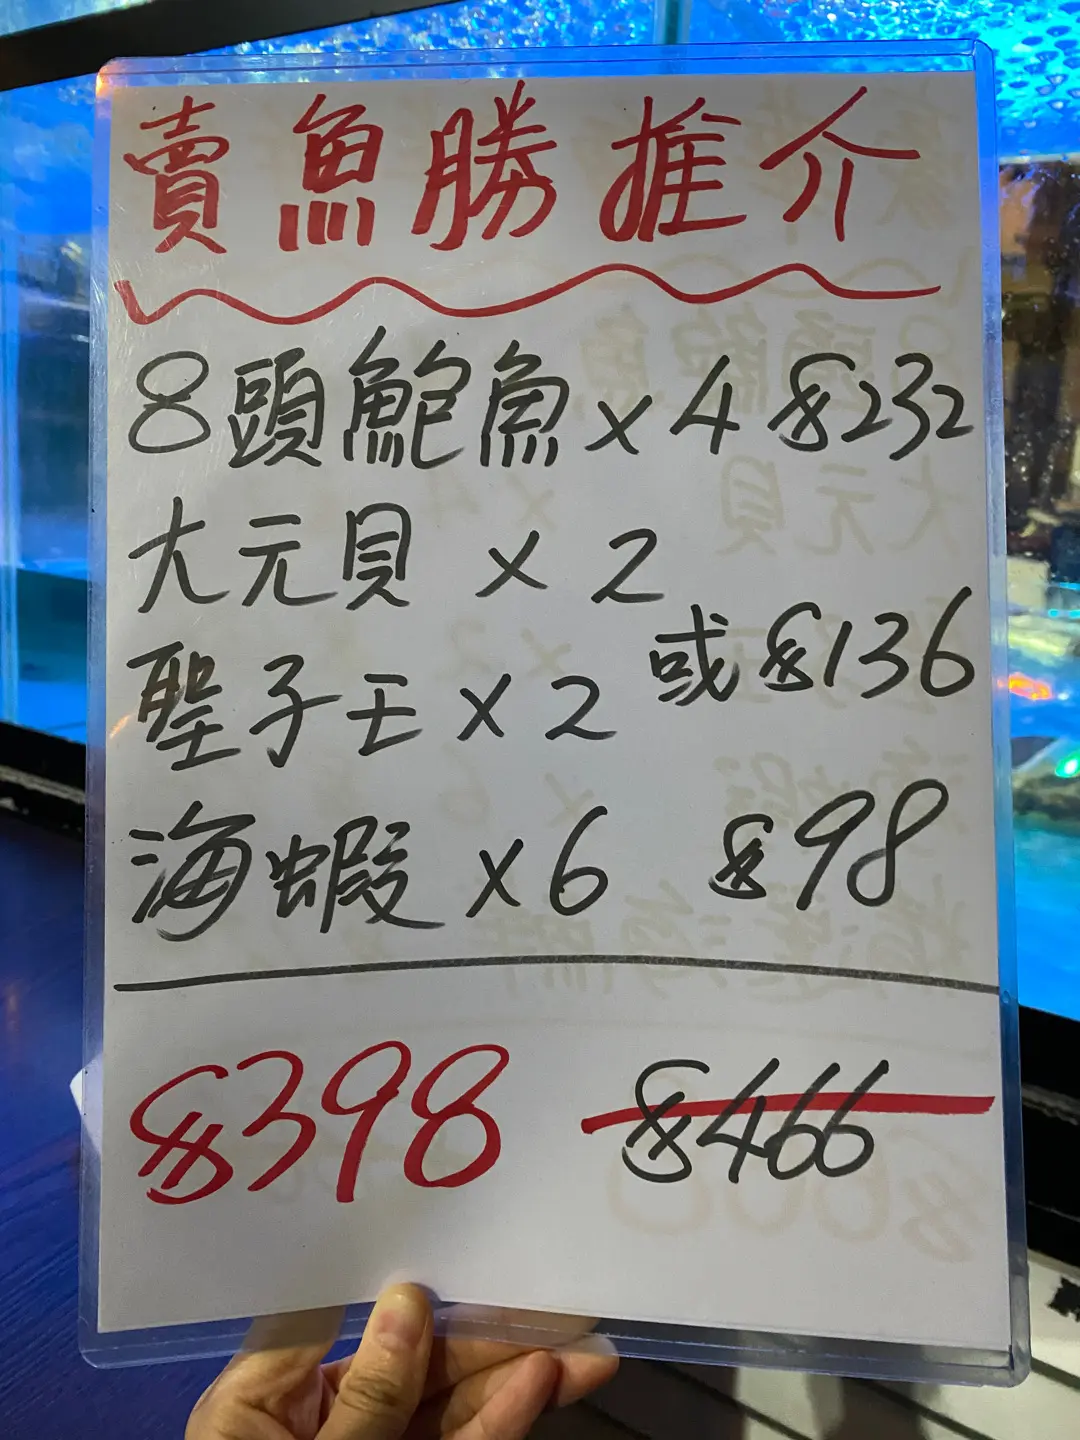 賣魚勝推介
8頭鮑魚 x 4 $232
大元貝 x 2
聖子王 x 2 或 $136
海蝦 x 6 $98
$398 $466